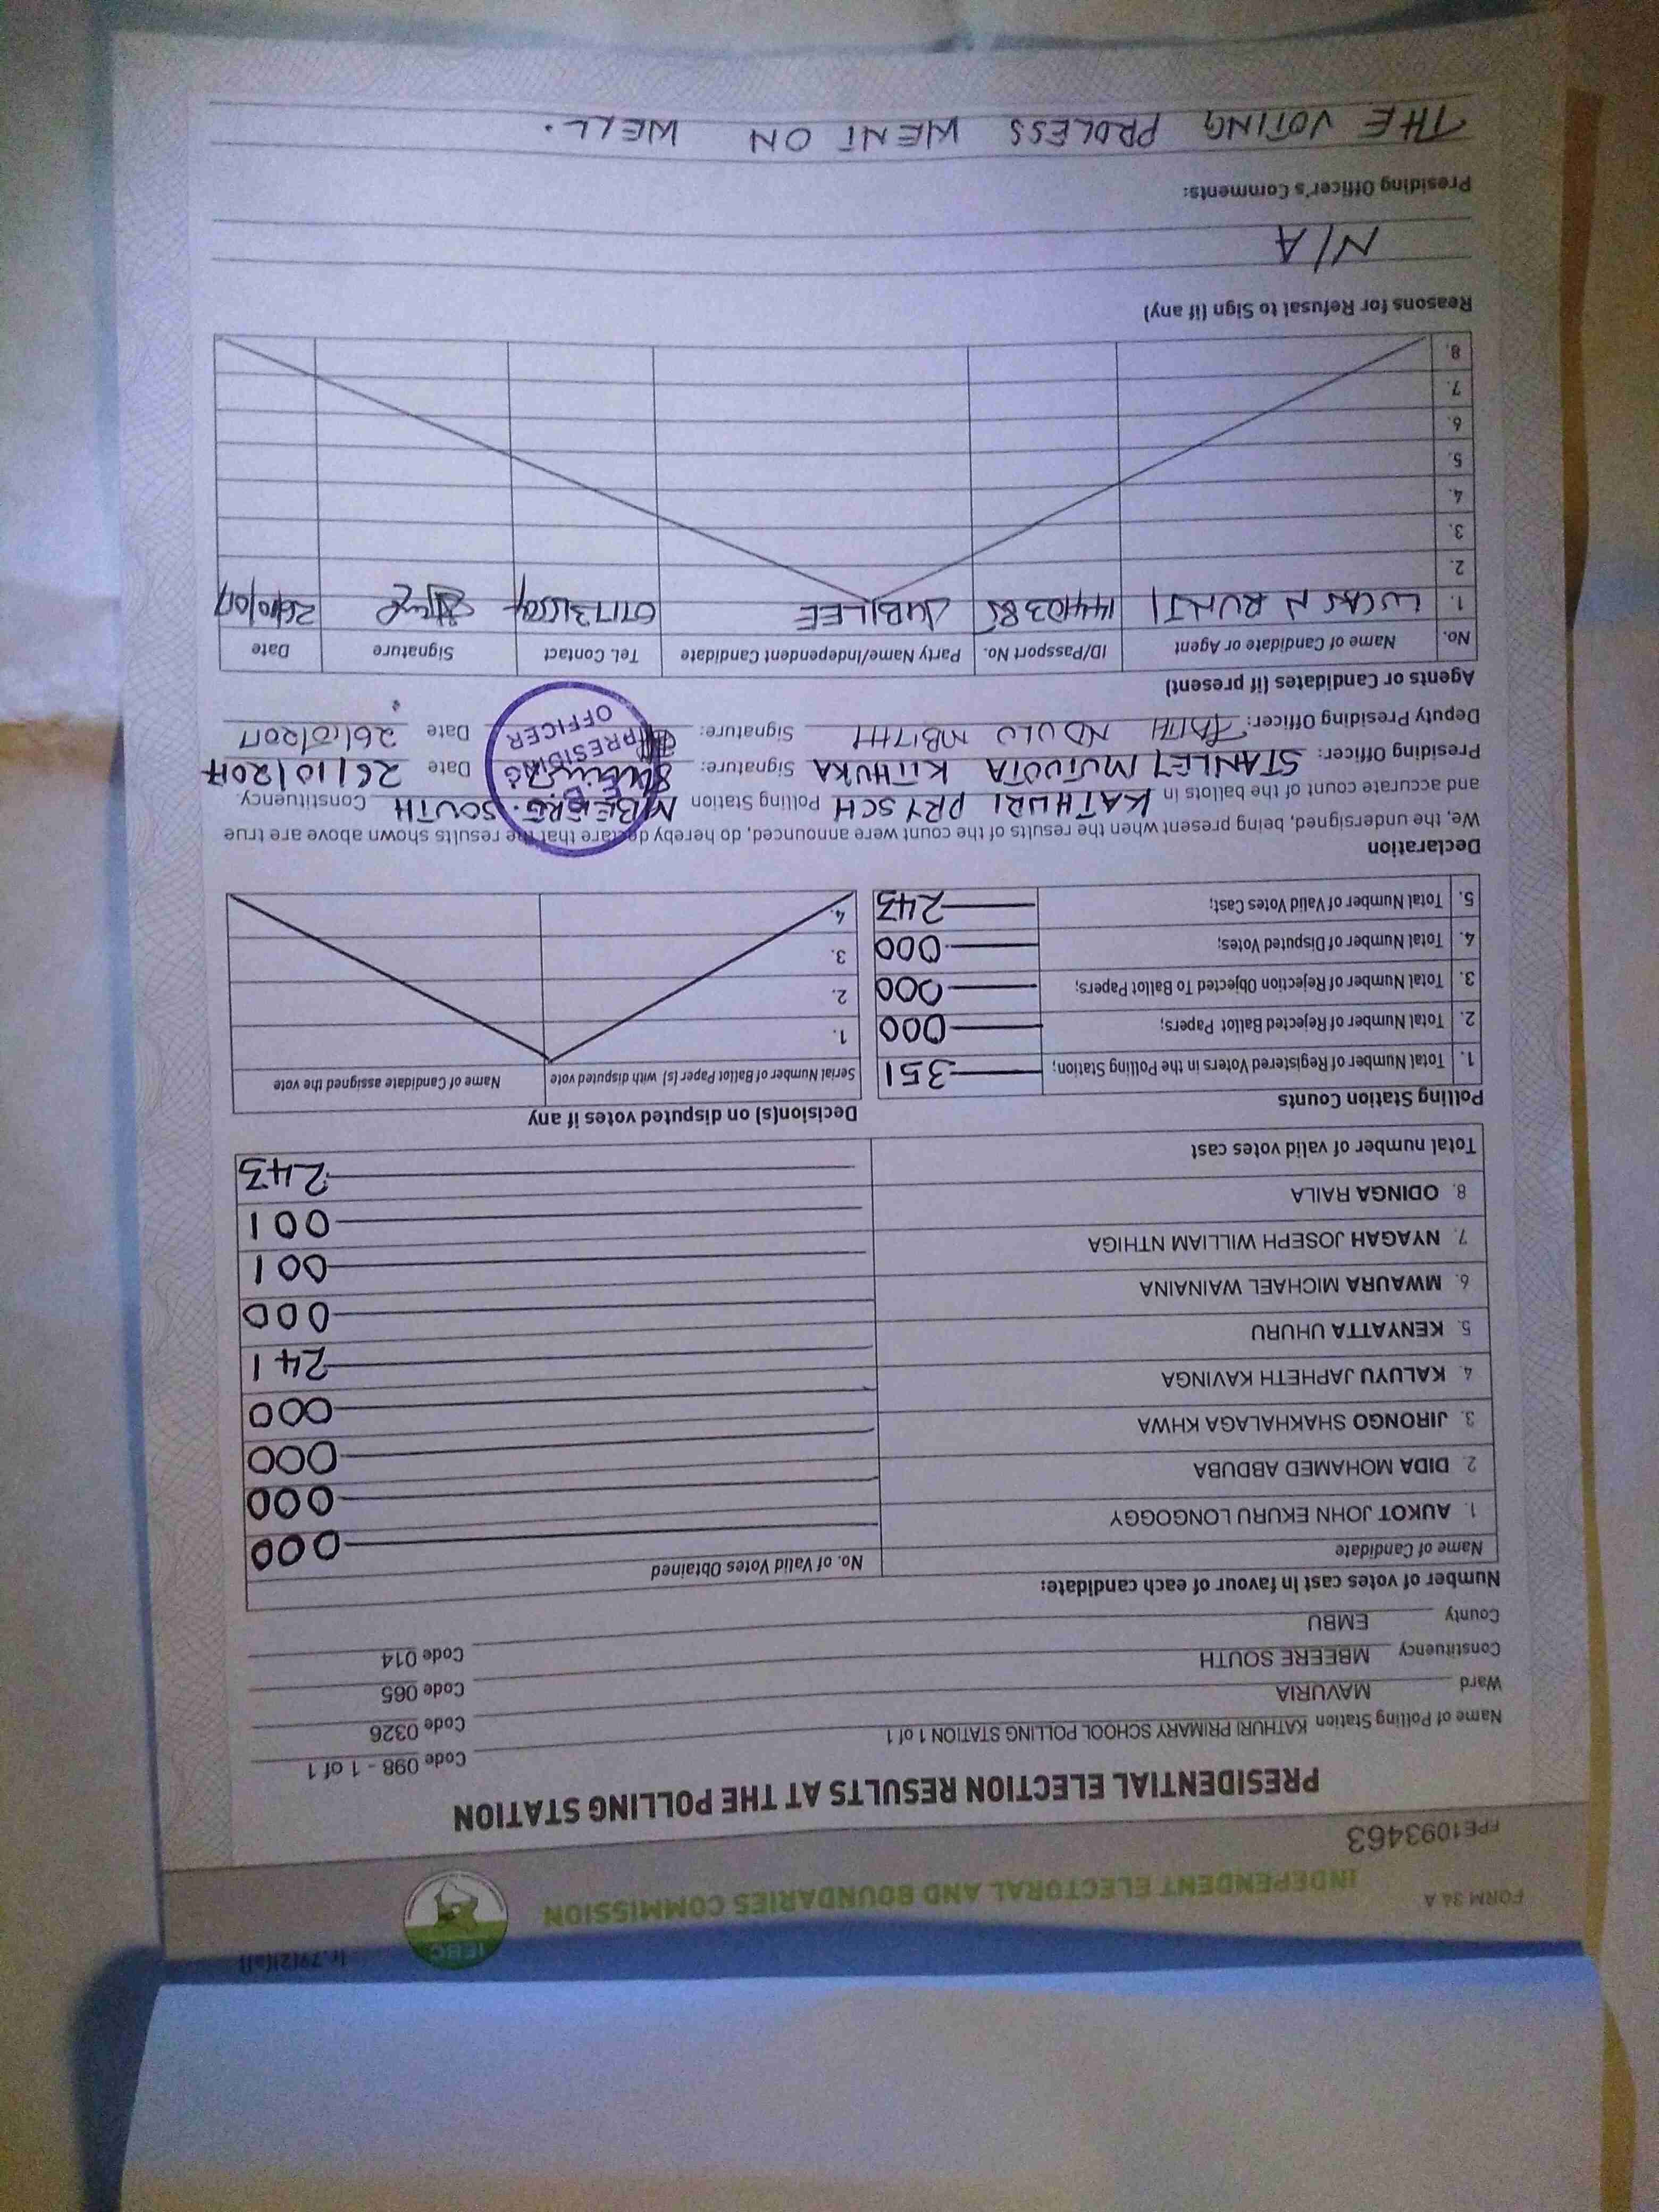 [r.79(2)(a)]
FORM 34 A
INDEPENDENT ELECTORAL AND BOUNDARIES COMMISSION
IEBC
FPE1093463
PRESIDENTIAL ELECTION RESULTS AT THE POLLING STATION
Name of Polling Station KATHURI PRIMARY SCHOOL POLLING STATION 1 of 1 Code 098 - 1 of 1
Ward MAVURIA Code 0326
Constituency MBEERE SOUTH Code 065
County EMBU Code 014
Number of votes cast in favour of each candidate:
Name of Candidate No. of Valid Votes Obtained
1. AUKOT JOHN EKURU LONGOGGY 000
2. DIDA MOHAMED ABDUBA 000
3. JIRONGO SHAKHALAGA KHWA 000
4. KALUYU JAPHETH KAVINGA 000
5. KENYATTA UHURU 241
6. MWAURA MICHAEL WAINAINA 000
7. NYAGAH JOSEPH WILLIAM NTHIGA 001
8. ODINGA RAILA 001
Total number of valid votes cast 243
Polling Station Counts
1. Total Number of Registered Voters in the Polling Station; 351
2. Total Number of Rejected Ballot Papers; 000
3. Total Number of Rejection Objected To Ballot Papers; 000
4. Total Number of Disputed Votes; 000
5. Total Number of Valid Votes Cast; 243
Decision(s) on disputed votes if any
Serial Number of Ballot Paper (s) with disputed vote Name of Candidate assigned the vote
1.
2.
3.
4.
Declaration
We, the undersigned, being present when the results of the count were announced, do hereby declare that the results shown above are true
and accurate count of the ballots in KATHURI PRY SCH Polling Station MBEERE SOUTH Constituency
Presiding Officer: STANLEY MUTUOTA KITHUKA Signature: Date 26/10/2017
Deputy Presiding Officer: FAITH NDULU MBITHI Signature: Date 26/10/2017
PRESIDING
OFFICER
Agents or Candidates (if present)
No. Name of Candidate or Agent ID/Passport No. Party Name/Independent Candidate Tel. Contact Signature Date
1. LUCAS N RUNJI JUBILEE 26/10/017
2.
3.
4.
5.
6.
7.
8.
Reasons for Refusal to Sign (if any)
N/A
Presiding Officer's Comments:
THE VOTING PROCESS WENT ON WELL.